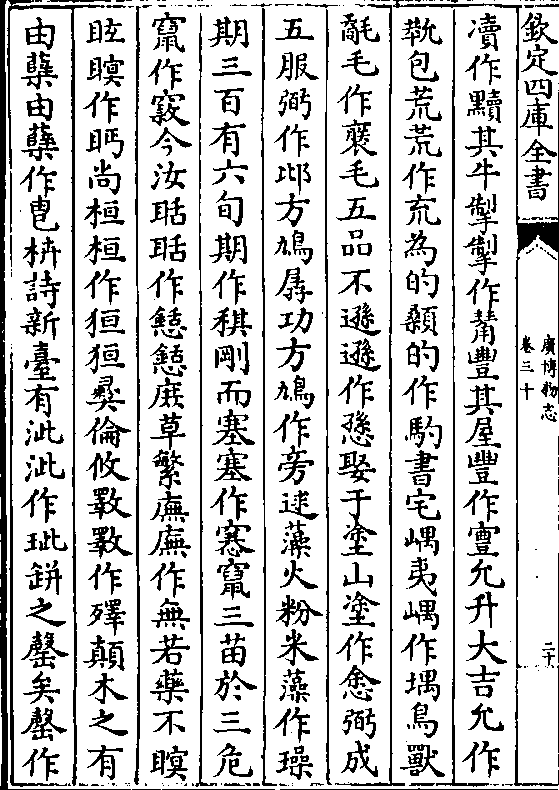 欽定四庫全書
廣博物志
卷三十
二十
凟作黷其牛掣掣作觢豐其屋豐作寷允升大吉允作
㽙包荒荒作㠩為的顙的作馰書宅嵎夷嵎作堣鳥獸
氄毛作褎毛五品不遜遜作愻娶于塗山塗作嵞弼成
五服弼作㢶方鳩孱功方鳩作旁逑藻火粉米藻作璪
期三百有六旬期作稘剛而塞塞作㥶竄三苗於三危
竄作㝮今汝聒聒作懖懖庶草繁廡廡作無若藥不瞑
眩瞑作眄尚桓桓作狟狟彛倫攸斁斁作殬顛木之有
由櫱由櫱作㽕枿詩新臺有泚泚作玼缾之罄矣罄作